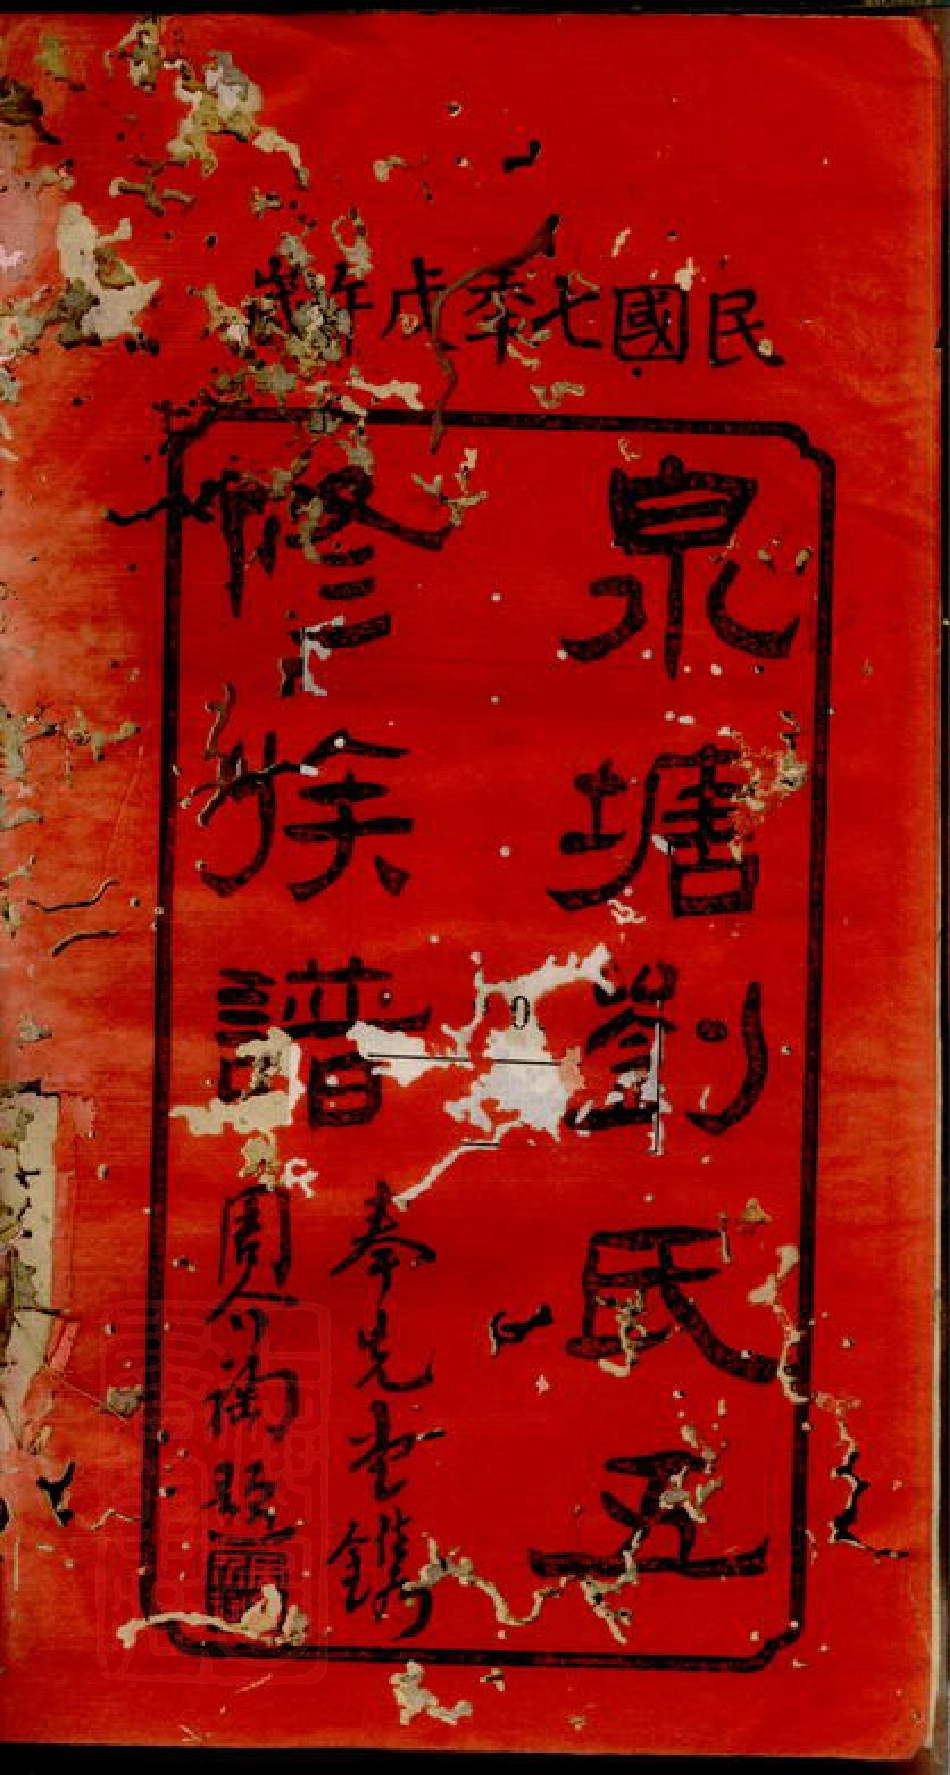 民國七年戊午歲
泉塘劉氏五
修族譜
奉先堂鐫
周介裪題